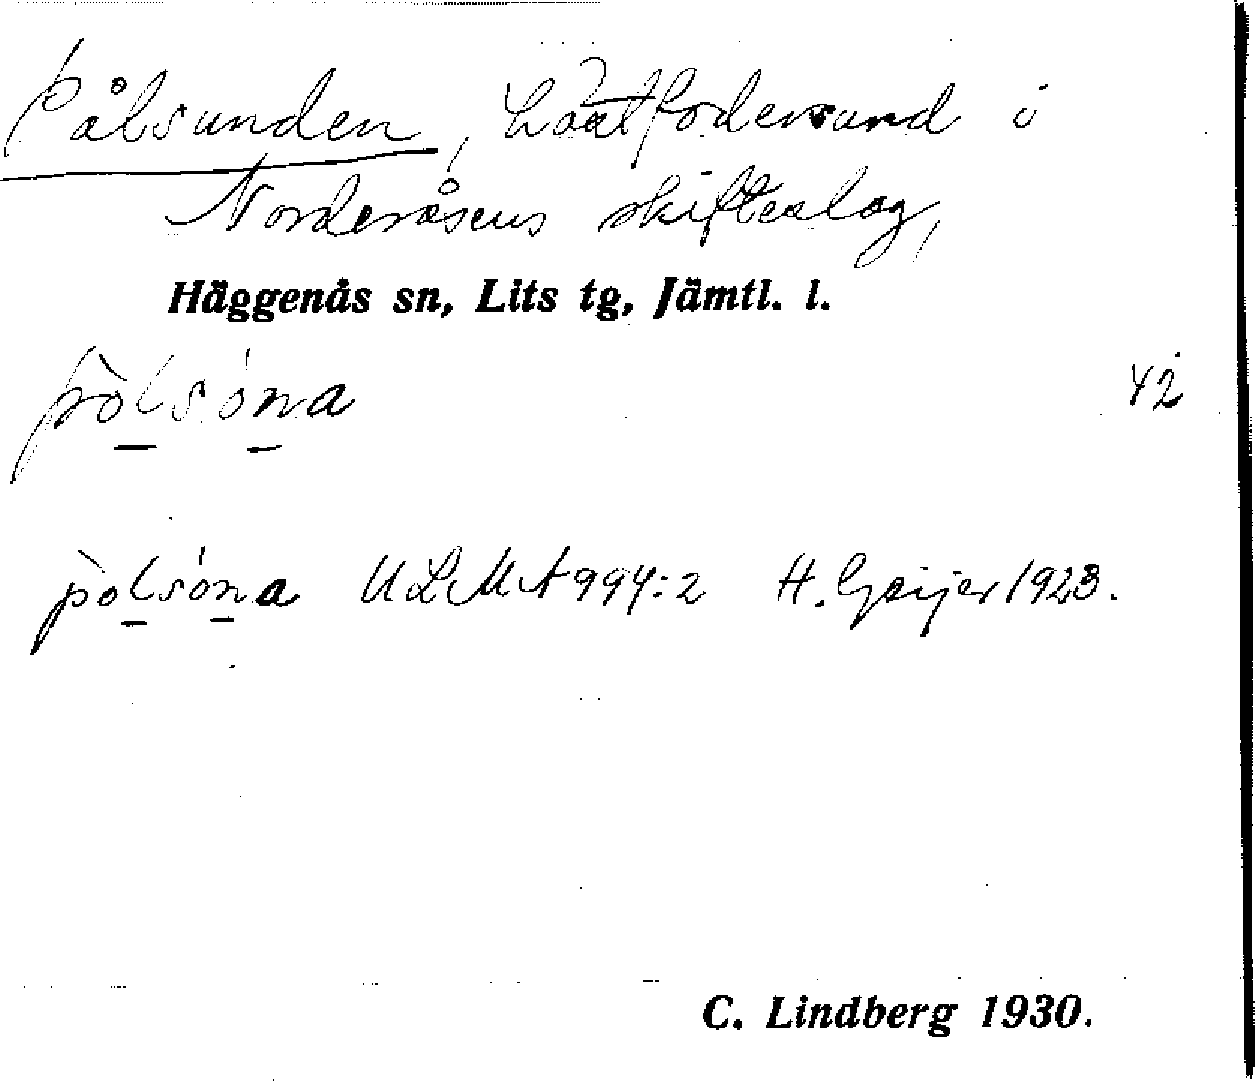 Pålsunden, Låstfodersund i
Norderåsens skifteslag,
Häggenås sn, Lits tg, Jämtl. l.
pòlsóna 42
pòlsóna ULMA 994:2 H. Geijer 1923.
C. Lindberg 1930.